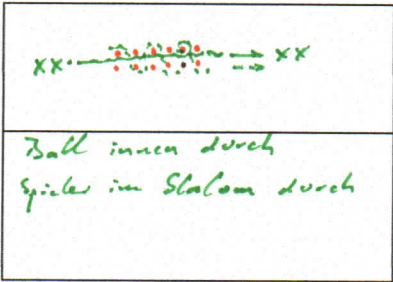 XX XX
Ball innen durch
Spieler im Slalom durch